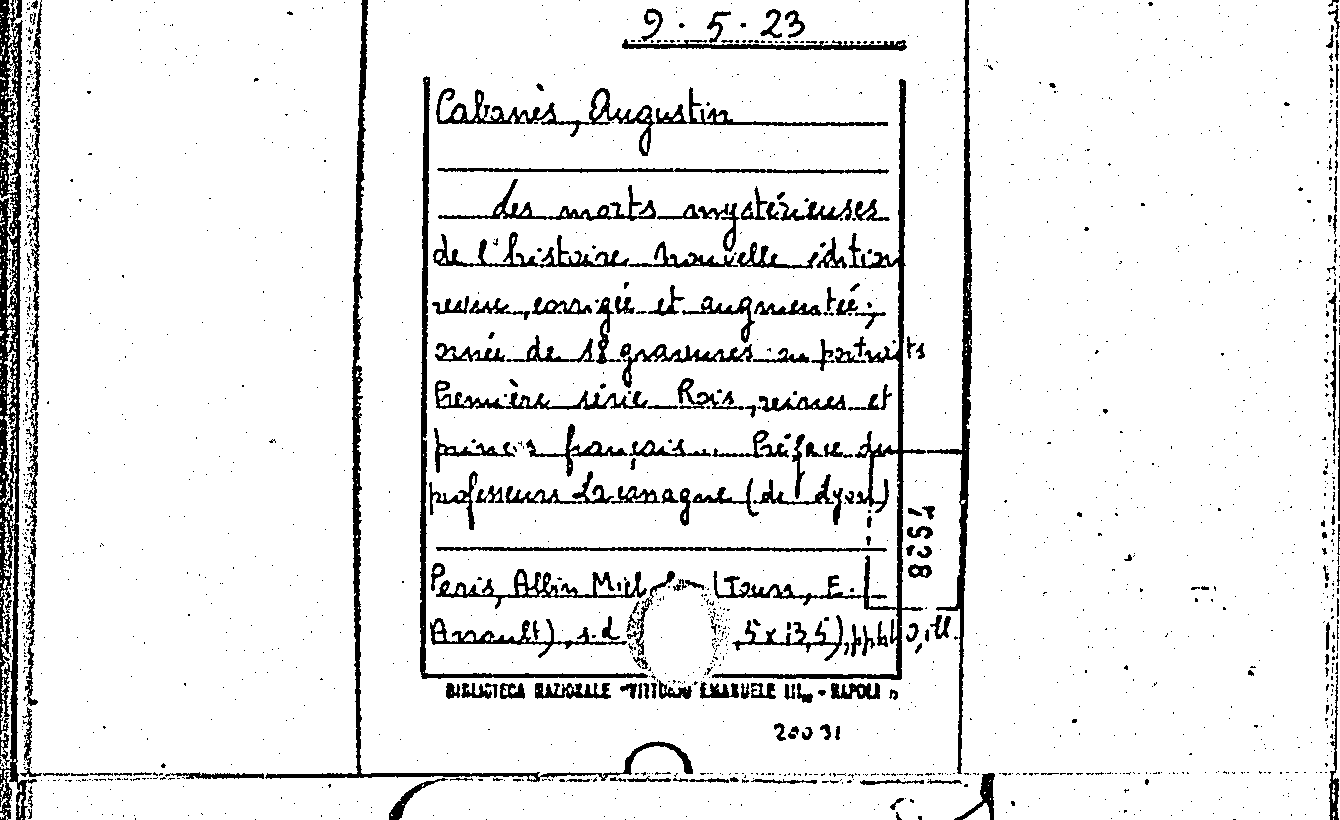 9.5.23
Cabanès, Augustin
Les morts mystérieuses
de l'histoire nouvelle édition
revue, corrigée et augmentée;
ornée de 18 gravures ou portraits
Première série Rois, reines et
princes français... Préface du
professeurs Lacanagne (de Lyon)
7528
Paris, Albin (Tours, E.
Arrault), s.d 5x13,5), ill.
BIBLIOTECA NAZIONALE "VITTORIO EMANUELE III" - NAPOLI
20031